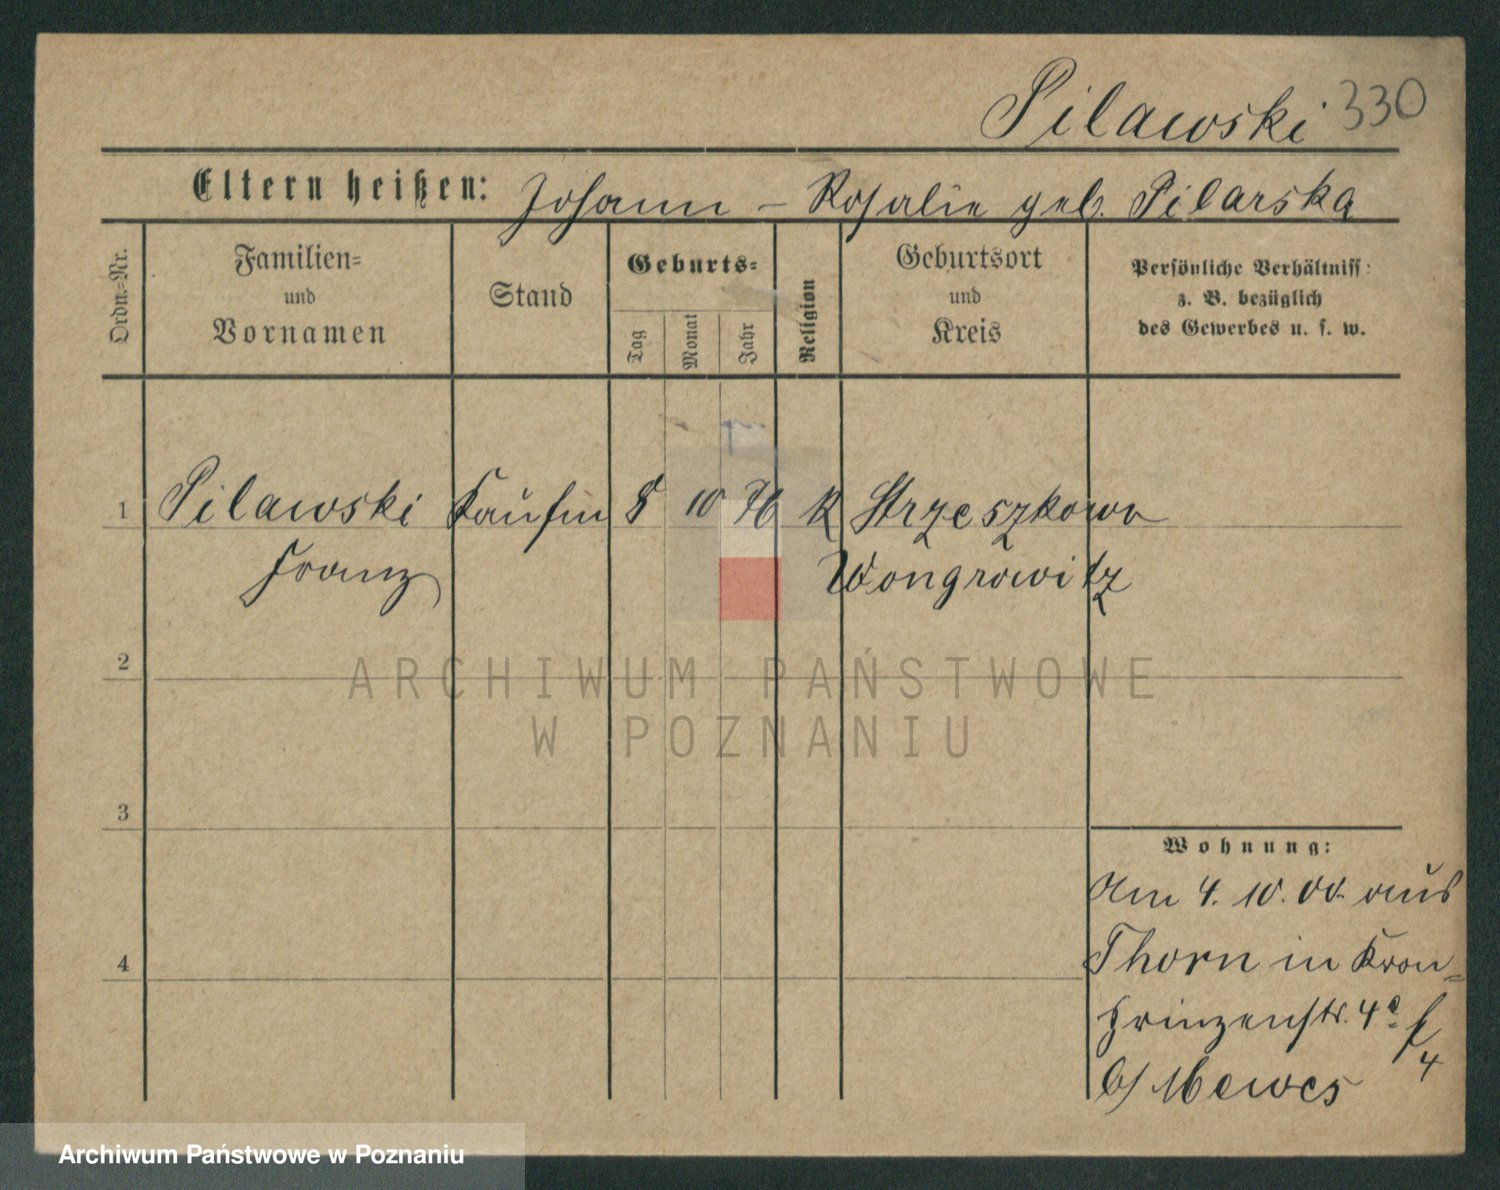 Pilawski 330
Eltern heißen: Johann – Rosalie geb. Pilarska
Ordn.=Nr.
Familien=
und
Vornamen
Stand
Geburts=
Tag
Monat
Jahr
Religion
Geburtsort
und
Kreis
Persönliche Verhältniss
z. B. bezüglich
des Gewerbes u. s. w.
1 Pilawski Kaufm 8 10 76 K Strzeszkowo
Franz Wongrowitz
2
ARCHIWUM PAŃSTWOWE
W POZNANIU
3
Wohnung:
Am 4. 10. 00. aus
4
Thorn in Kron=
prinzenstr. 4
b/ Mewes
4
Archiwum Państwowe w Poznaniu